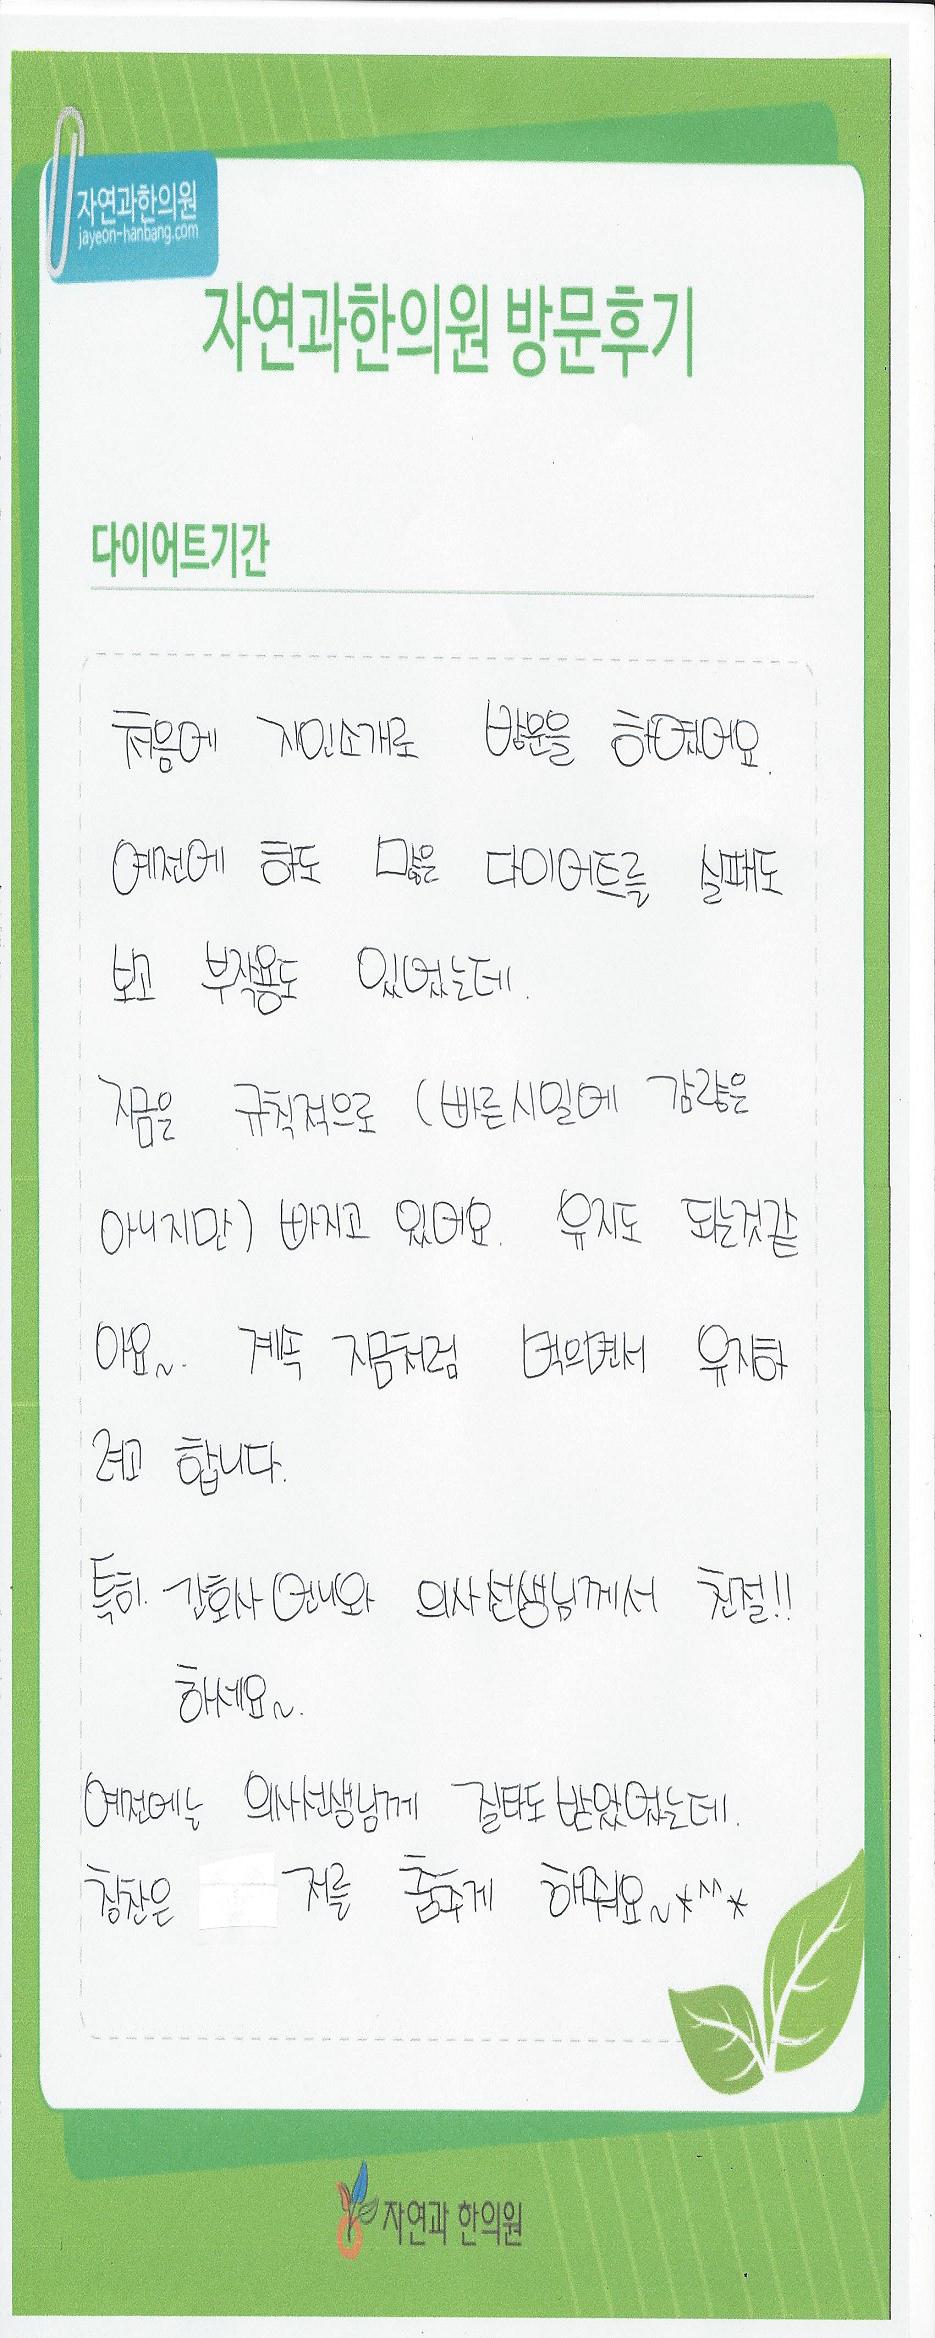 자연과한의원
jayeon-hanbang.com
자연과한의원 방문후기
다이어트기간
처음에 지인소개로 방문을 하였어요.
예전에 하도 많은 다이어트를 실패도
보고 부작용도 있었는데.
지금은 규칙적으로 (빠른시일에 감량은
아니지만) 빠지고 있어요. 유지도 되는것같
아요~. 계속 지금처럼 먹으면서 유지하
려고 합니다.
특히. 간호사 언니와 의사선생님께서 친절!!
하세요~.
예전에는 의사선생님께 질타도 받았었는데.
칭찬은 저를 춤추게 해줘요~*^^*
자연과 한의원